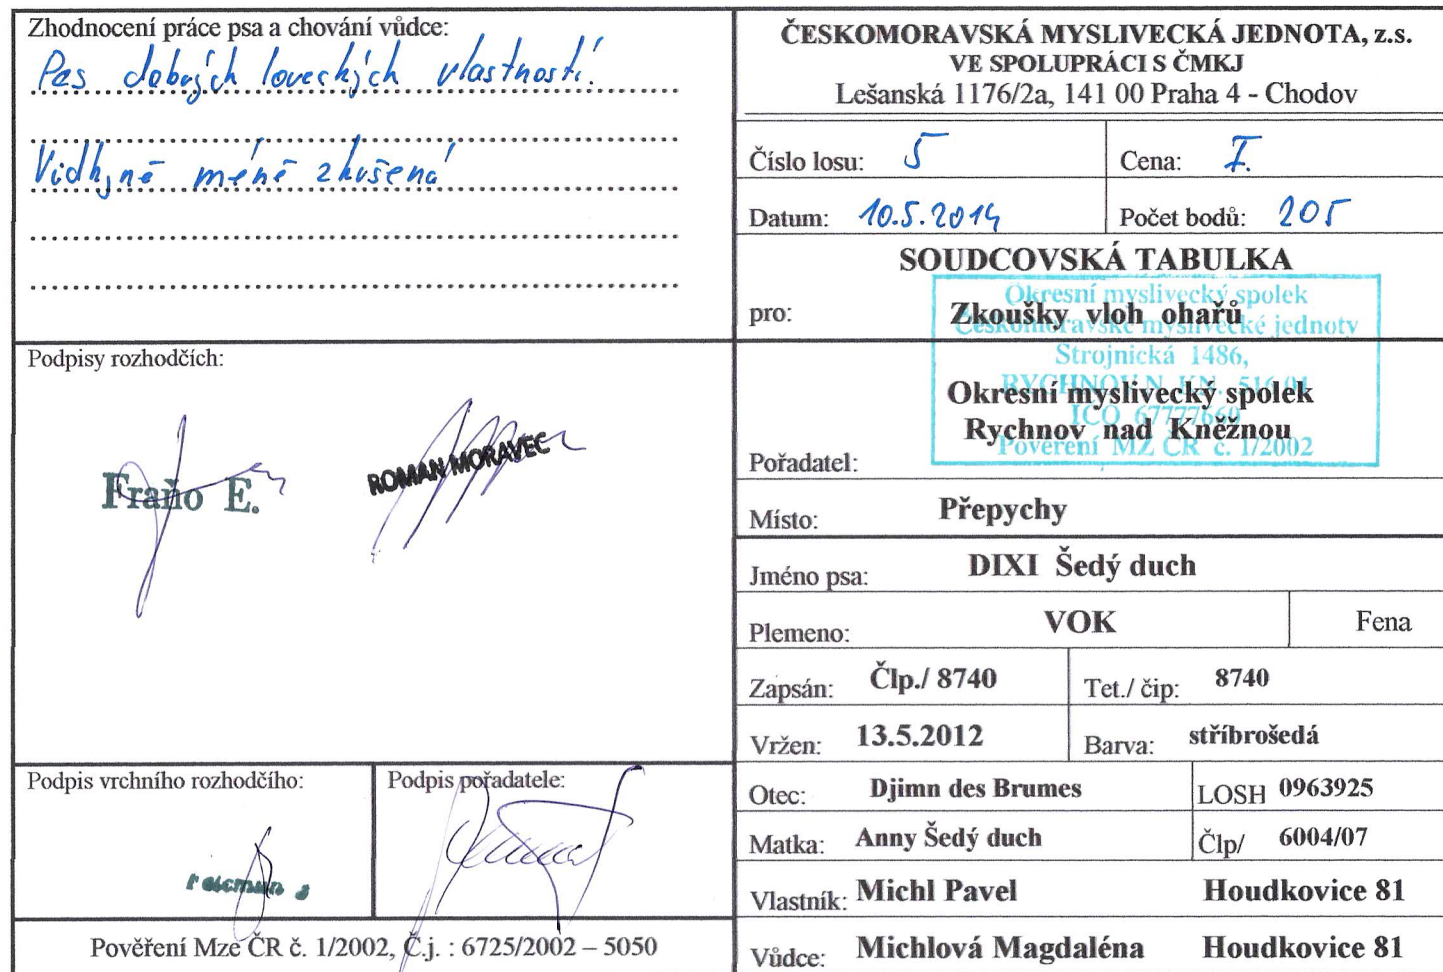 Zhodnocení práce psa a chování vůdce:
Pes dobrých loveckých vlastností.
Vůdkyně méně zkušená
Podpisy rozhodčích:
Fraňo E.
ROMAN MORAVEC
Podpis vrchního rozhodčího:
Podpis pořadatele:
Pověření Mze ČR č. 1/2002, Č.j. : 6725/2002 – 5050
ČESKOMORAVSKÁ MYSLIVECKÁ JEDNOTA, z.s.
VE SPOLUPRÁCI S ČMKJ
Lešanská 1176/2a, 141 00 Praha 4 - Chodov
Číslo losu: 5 Cena: I.
Datum: 10.5.2014 Počet bodů: 205
SOUDCOVSKÁ TABULKA
Okresní myslivecký spolek
pro: Zkoušky vloh ohařů
Českomoravské myslivecké jednoty
Strojnická 1486,
RYCHNOV N. KN. 516 01
Okresní myslivecký spolek
IČO 67777660
Rychnov nad Kněžnou
Pověření MZ ČR č. 1/2002
Pořadatel:
Místo: Přepychy
Jméno psa: DIXI Šedý duch
Plemeno: VOK Fena
Zapsán: Člp./ 8740 Tet./ čip: 8740
Vržen: 13.5.2012 Barva: stříbrošedá
Otec: Djimn des Brumes LOSH 0963925
Matka: Anny Šedý duch Člp/ 6004/07
Vlastník: Michl Pavel Houdkovice 81
Vůdce: Michlová Magdaléna Houdkovice 81